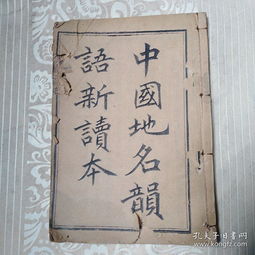 中國地名韻
語新讀本
孔夫子旧书网